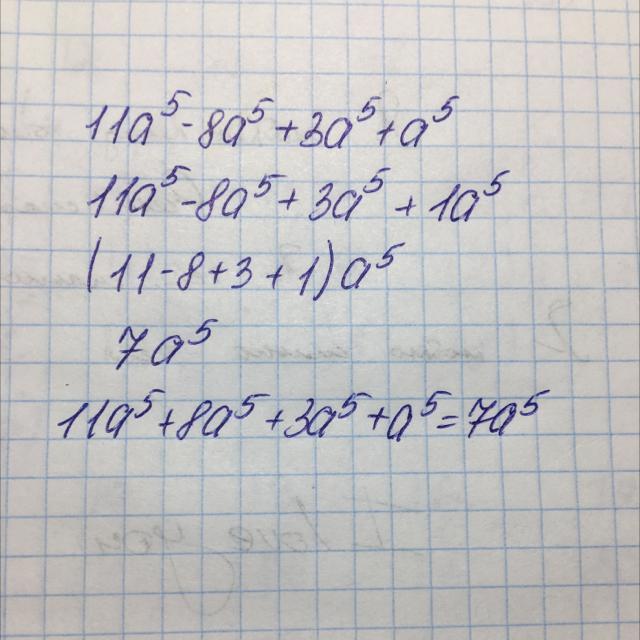 11a⁵-8a⁵+3a⁵+a⁵
11a⁵-8a⁵+3a⁵+1a⁵
(11-8+3+1)a⁵
7a⁵
11a⁵+8a⁵+3a⁵+a⁵=7a⁵